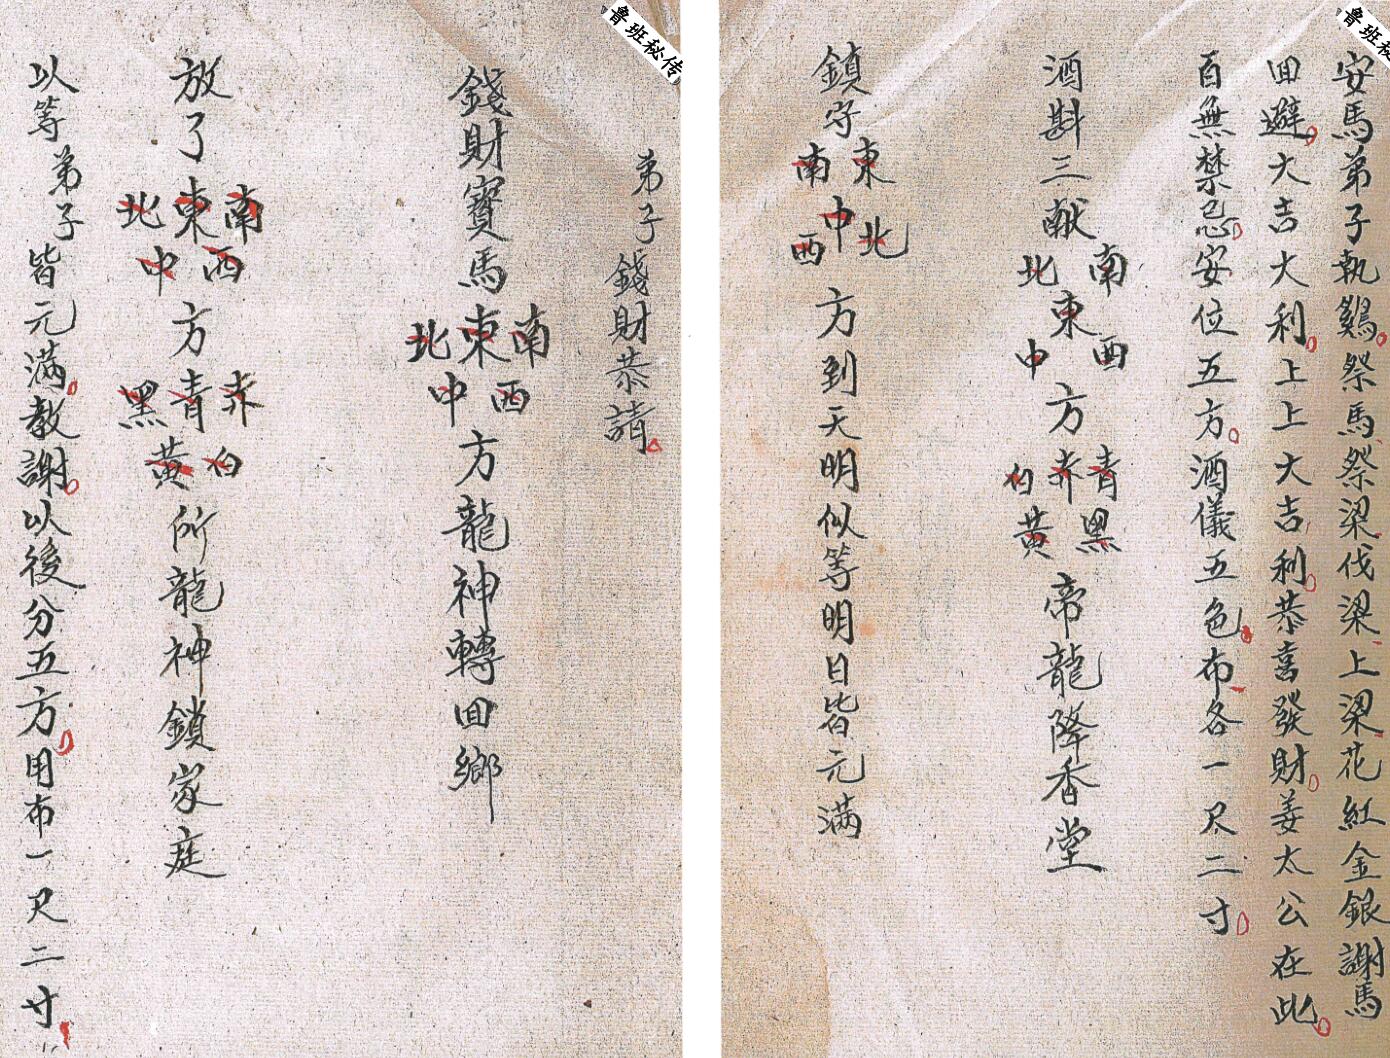 鲁班秘
安馬弟子執鷄祭馬祭梁伐梁上梁花紅金銀謝馬
回避大吉大利上上大吉利恭喜發財姜太公在此
百無禁忌安位五方酒儀五色布各一尺二寸
酒斟三献南東北西中方青赤白黑黃帝龍降香堂
鎮守東南中北西方到天明似等明日皆元满
鲁班秘传
弟子錢財恭請
錢財寶馬南東北西中方龍神轉回鄉
放了南東北西中方赤青黑白黃所龍神鎖家庭
以等弟子皆元满教謝以後分五方用布一尺二寸